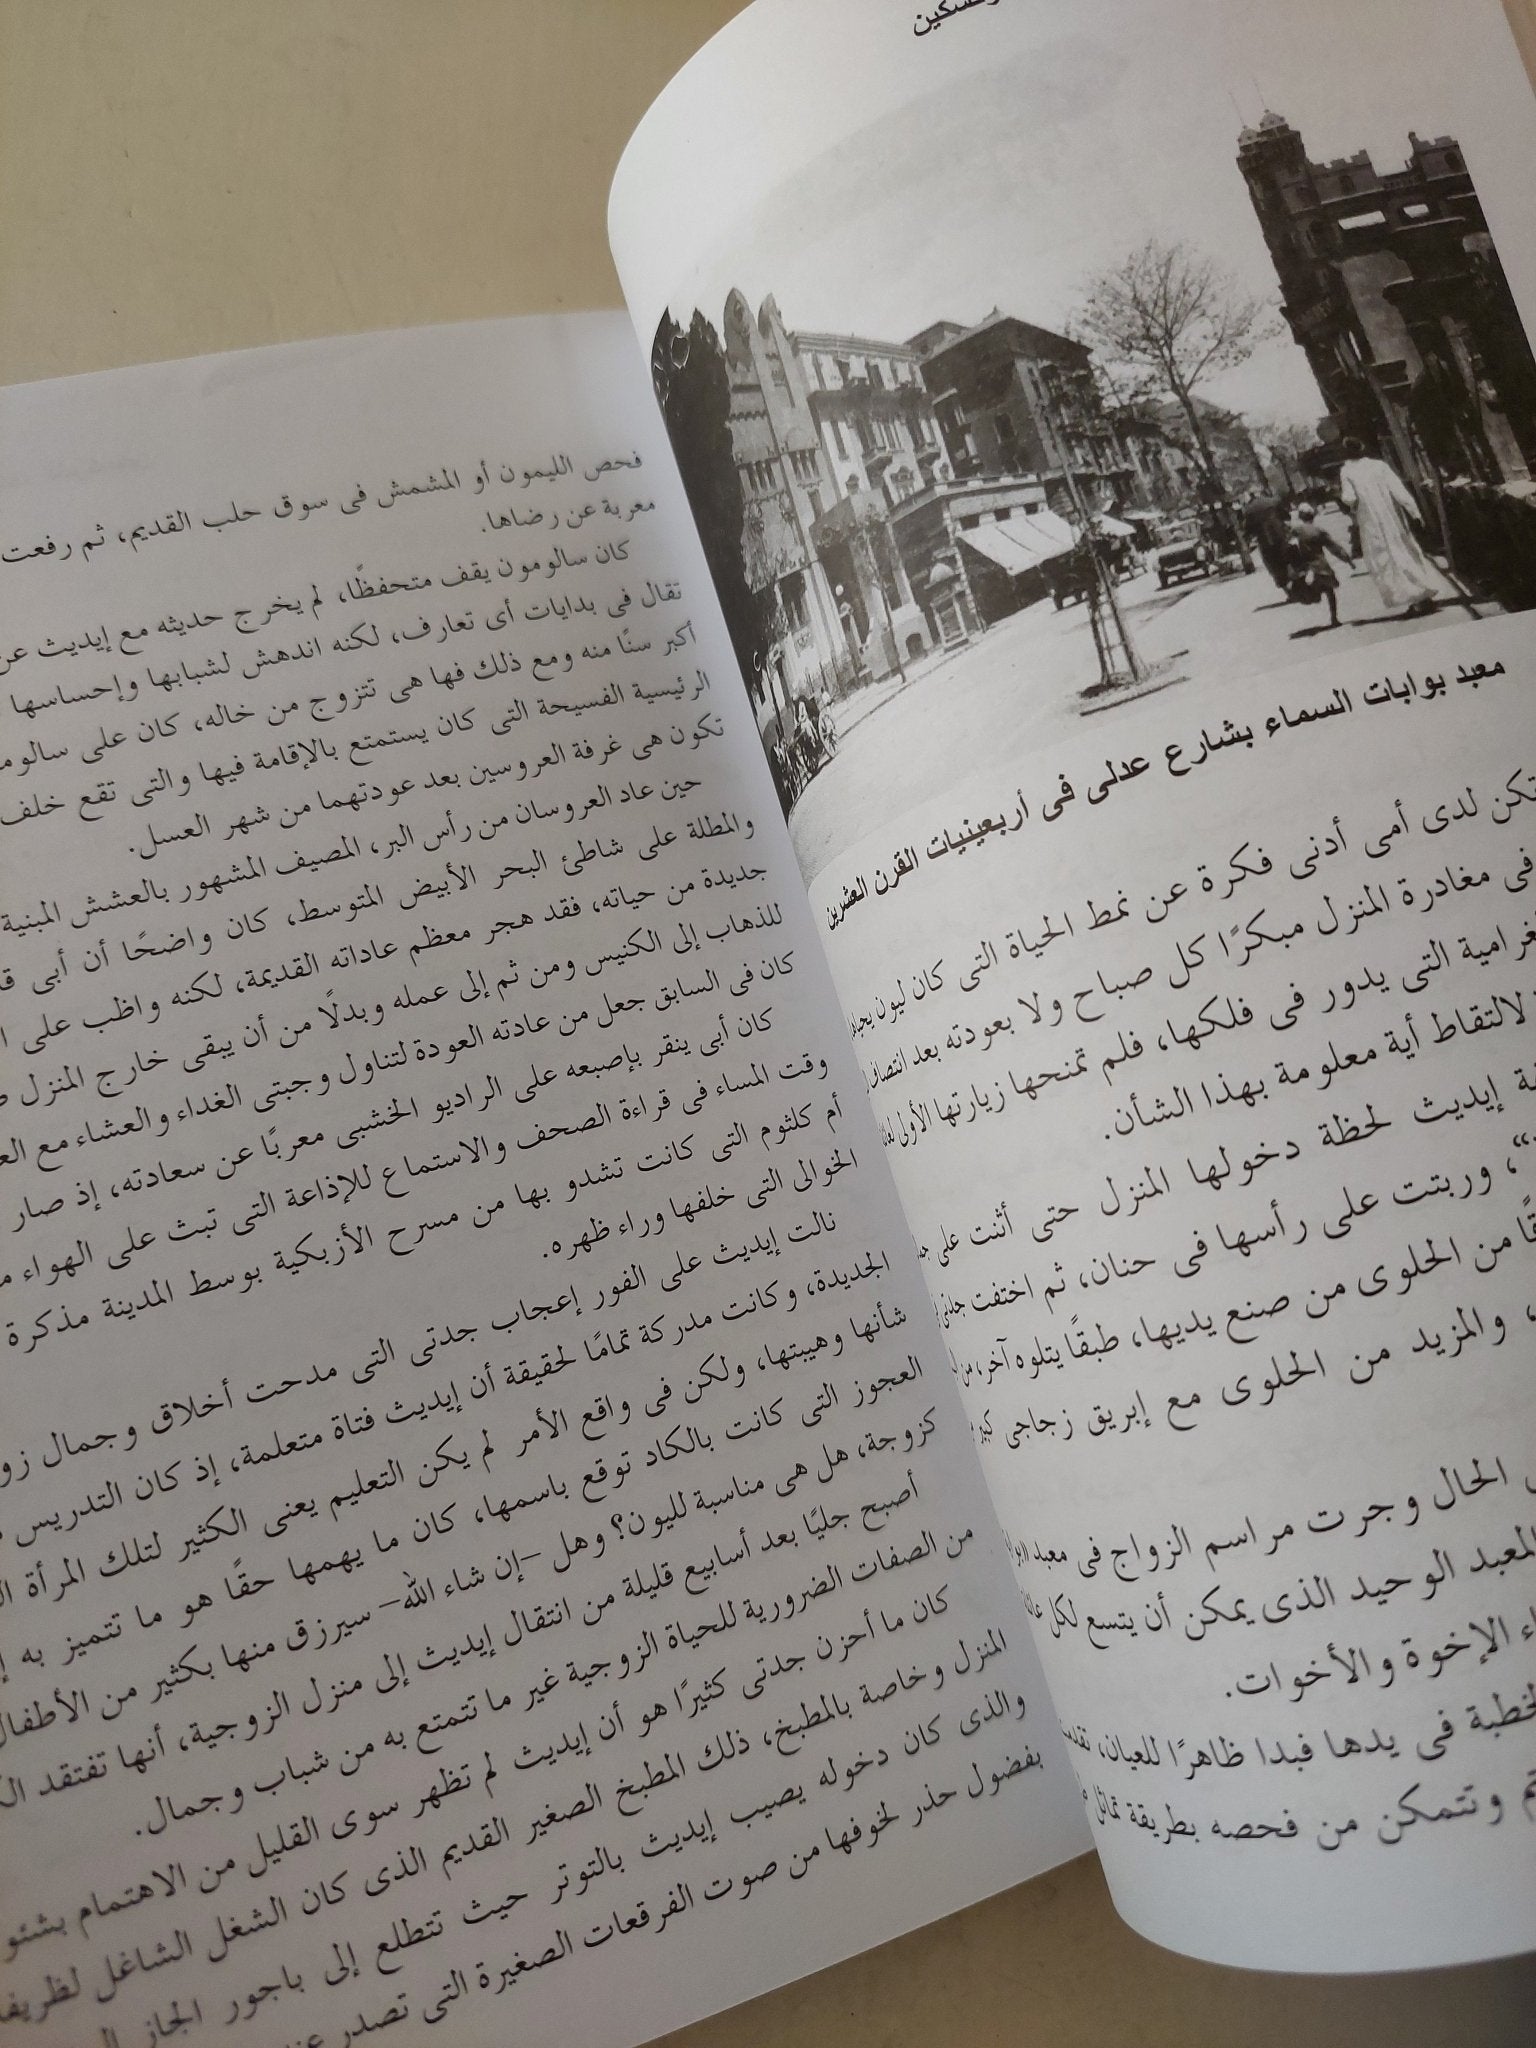 معبد بوابات السماء بشارع عدلى فى أربعينيات القرن العشرين
تكن لدى أمى أدنى فكرة عن نمط الحياة التى كان ليون يحياها
فى مغادرة المنزل مبكرًا كل صباح ولا بعودته بعد انتصاف
التى يدور فى فلكها، فلم تمنحها زيارتها الأولى
لالتقاط أية معلومة بهذا الشأن.
إيديث لحظة دخولها المنزل حتى أثنت على
وربتت على رأسها فى حنان، ثم اختفت جدتى
من الحلوى من صنع يديها، طبقًا يتلوه آخر، من
والمزيد من الحلوى مع إبريق زجاجى كبير
الحال وجرت مراسم الزواج فى معبد
المعبد الوحيد الذى يمكن أن يتسع لكل
الإخوة والأخوات.
فى يدها فبدا ظاهرًا للعيان، تقدمت
وتتمكن من فحصه بطريقة تماثل
فحص الليمون أو المشمش فى سوق حلب القديم، ثم رفعت
معربة عن رضاها.
كان سالومون يقف متحفظًا، لم يخرج حديثه مع إيديث عن
تقال فى بدايات أى تعارف، لكنه اندهش لشبابها وإحساسها
أكبر سنًا منه ومع ذلك فها هى تتزوج من خاله، كان على
الرئيسية الفسيحة التى كان يستمتع بالإقامة فيها والتى تقع خلف
تكون هى غرفة العروسين بعد عودتهما من شهر العسل.
حين عاد العروسان من رأس البر، المصيف المشهور بالعشش المبنية
والمطلة على شاطئ البحر الأبيض المتوسط، كان واضحًا أن أبى
جديدة من حياته، فقد هجر معظم عاداته القديمة، لكنه واظب على
للذهاب إلى الكنيس ومن ثم إلى عمله وبدلًا من أن يبقى خارج المنزل
كان فى السابق جعل من عادته العودة لتناول وجبتى الغداء والعشاء مع
كان أبى ينقر بإصبعه على الراديو الخشبى معربًا عن سعادته، إذ صار
وقت المساء فى قراءة الصحف والاستماع للإذاعة التى تبث على الهواء
أم كلثوم التى كانت تشدو بها من مسرح الأزبكية بوسط المدينة مذكرة
الخوالى التى خلفها وراء ظهره.
نالت إيديث على الفور إعجاب جدتى التى مدحت أخلاق وجمال
الجديدة، وكانت مدركة تمامًا لحقيقة أن إيديث فتاة متعلمة، إذ كان التدريس
شأنها وهيبتها، ولكن فى واقع الأمر لم يكن التعليم يعنى الكثير لتلك المرأة
العجوز التى كانت بالكاد توقع باسمها، كان ما يهمها حقًا هو ما تتميز به
كزوجة، هل هى مناسبة لليون؟ وهل -إن شاء الله- سيرزق منها بكثير من الأطفال
أصبح جليًا بعد أسابيع قليلة من انتقال إيديث إلى منزل الزوجية، أنها تفتقد
من الصفات الضرورية للحياة الزوجية غير ما تتمتع به من شباب وجمال.
كان ما أحزن جدتى كثيرًا هو أن إيديث لم تظهر سوى القليل من الاهتمام
المنزل وخاصة بالمطبخ، ذلك المطبخ الصغير القديم الذى كان الشغل الشاغل
والذى كان دخوله يصيب إيديث بالتوتر حيث تتطلع إلى باجور الجاز
بفضول حذر لخوفها من صوت الفرقعات الصغيرة التى تصدر